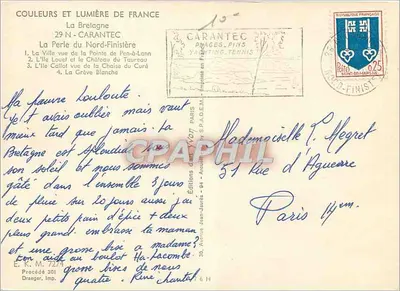 COULEURS ET LUMIÈRE DE FRANCE
La Bretagne
29 N - CARANTEC
La Perle du Nord-Finistère
1. La Ville vue de la Pointe de Pen-à-Lann
2. L'Ile Louet et le Château du Taureau
3. L'Ile Callot vue de la Chaise du Curé
4. La Grève Blanche
15-
CARANTEC
PLAGES, PINS
YACHTING, TENNIS
RÉPUBLIQUE FRANÇAISE
0,25
MONT-DE-MARSAN
NORD-FINIST
Ma pauvre louloute
t'avais oubliée mais vaut
mieux tard que jamais. La
Bretagne est splendide sous
son soleil et nous sommes
gâté dans l'ensemble 3 jours
de pluie sur 20 jours aussi j'ai
deux petits pain d'épice + deux
plus grand. embrasse ta maman
et une grosse bise a madame
on aide au boulot Ha-Lacombe.
grosse bises de nous
quatre. René, chantal
Mademoiselle P. Megret
51 Rue d'Aguerre
Paris 14em
CARAPHIL
E. K. M. 7274
Procédé 301
Draeger, Imp.